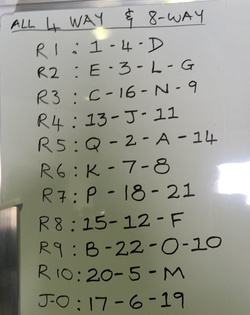 ALL 4 WAY & 8-WAY
R1 : 1-4-D
R2 : E-3-L-G
R3 : C-16-N-9
R4 : 13-J-11
R5 : Q-2-A-14
R6 : K-7-8
R7 : P-18-21
R8 : 15-12-F
R9 : B-22-O-10
R10 : 20-5-M
J-O : 17-6-19